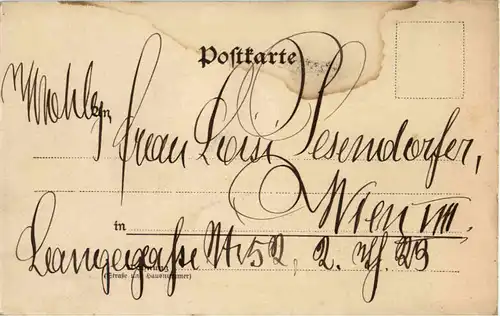 Postkarte
Wohlg.
Frau Loisi Pesendorfer,
in Wien VIII.
Langegasse Nr. 52, 2. 23
Wohnung
(Straße und Hausnummer)